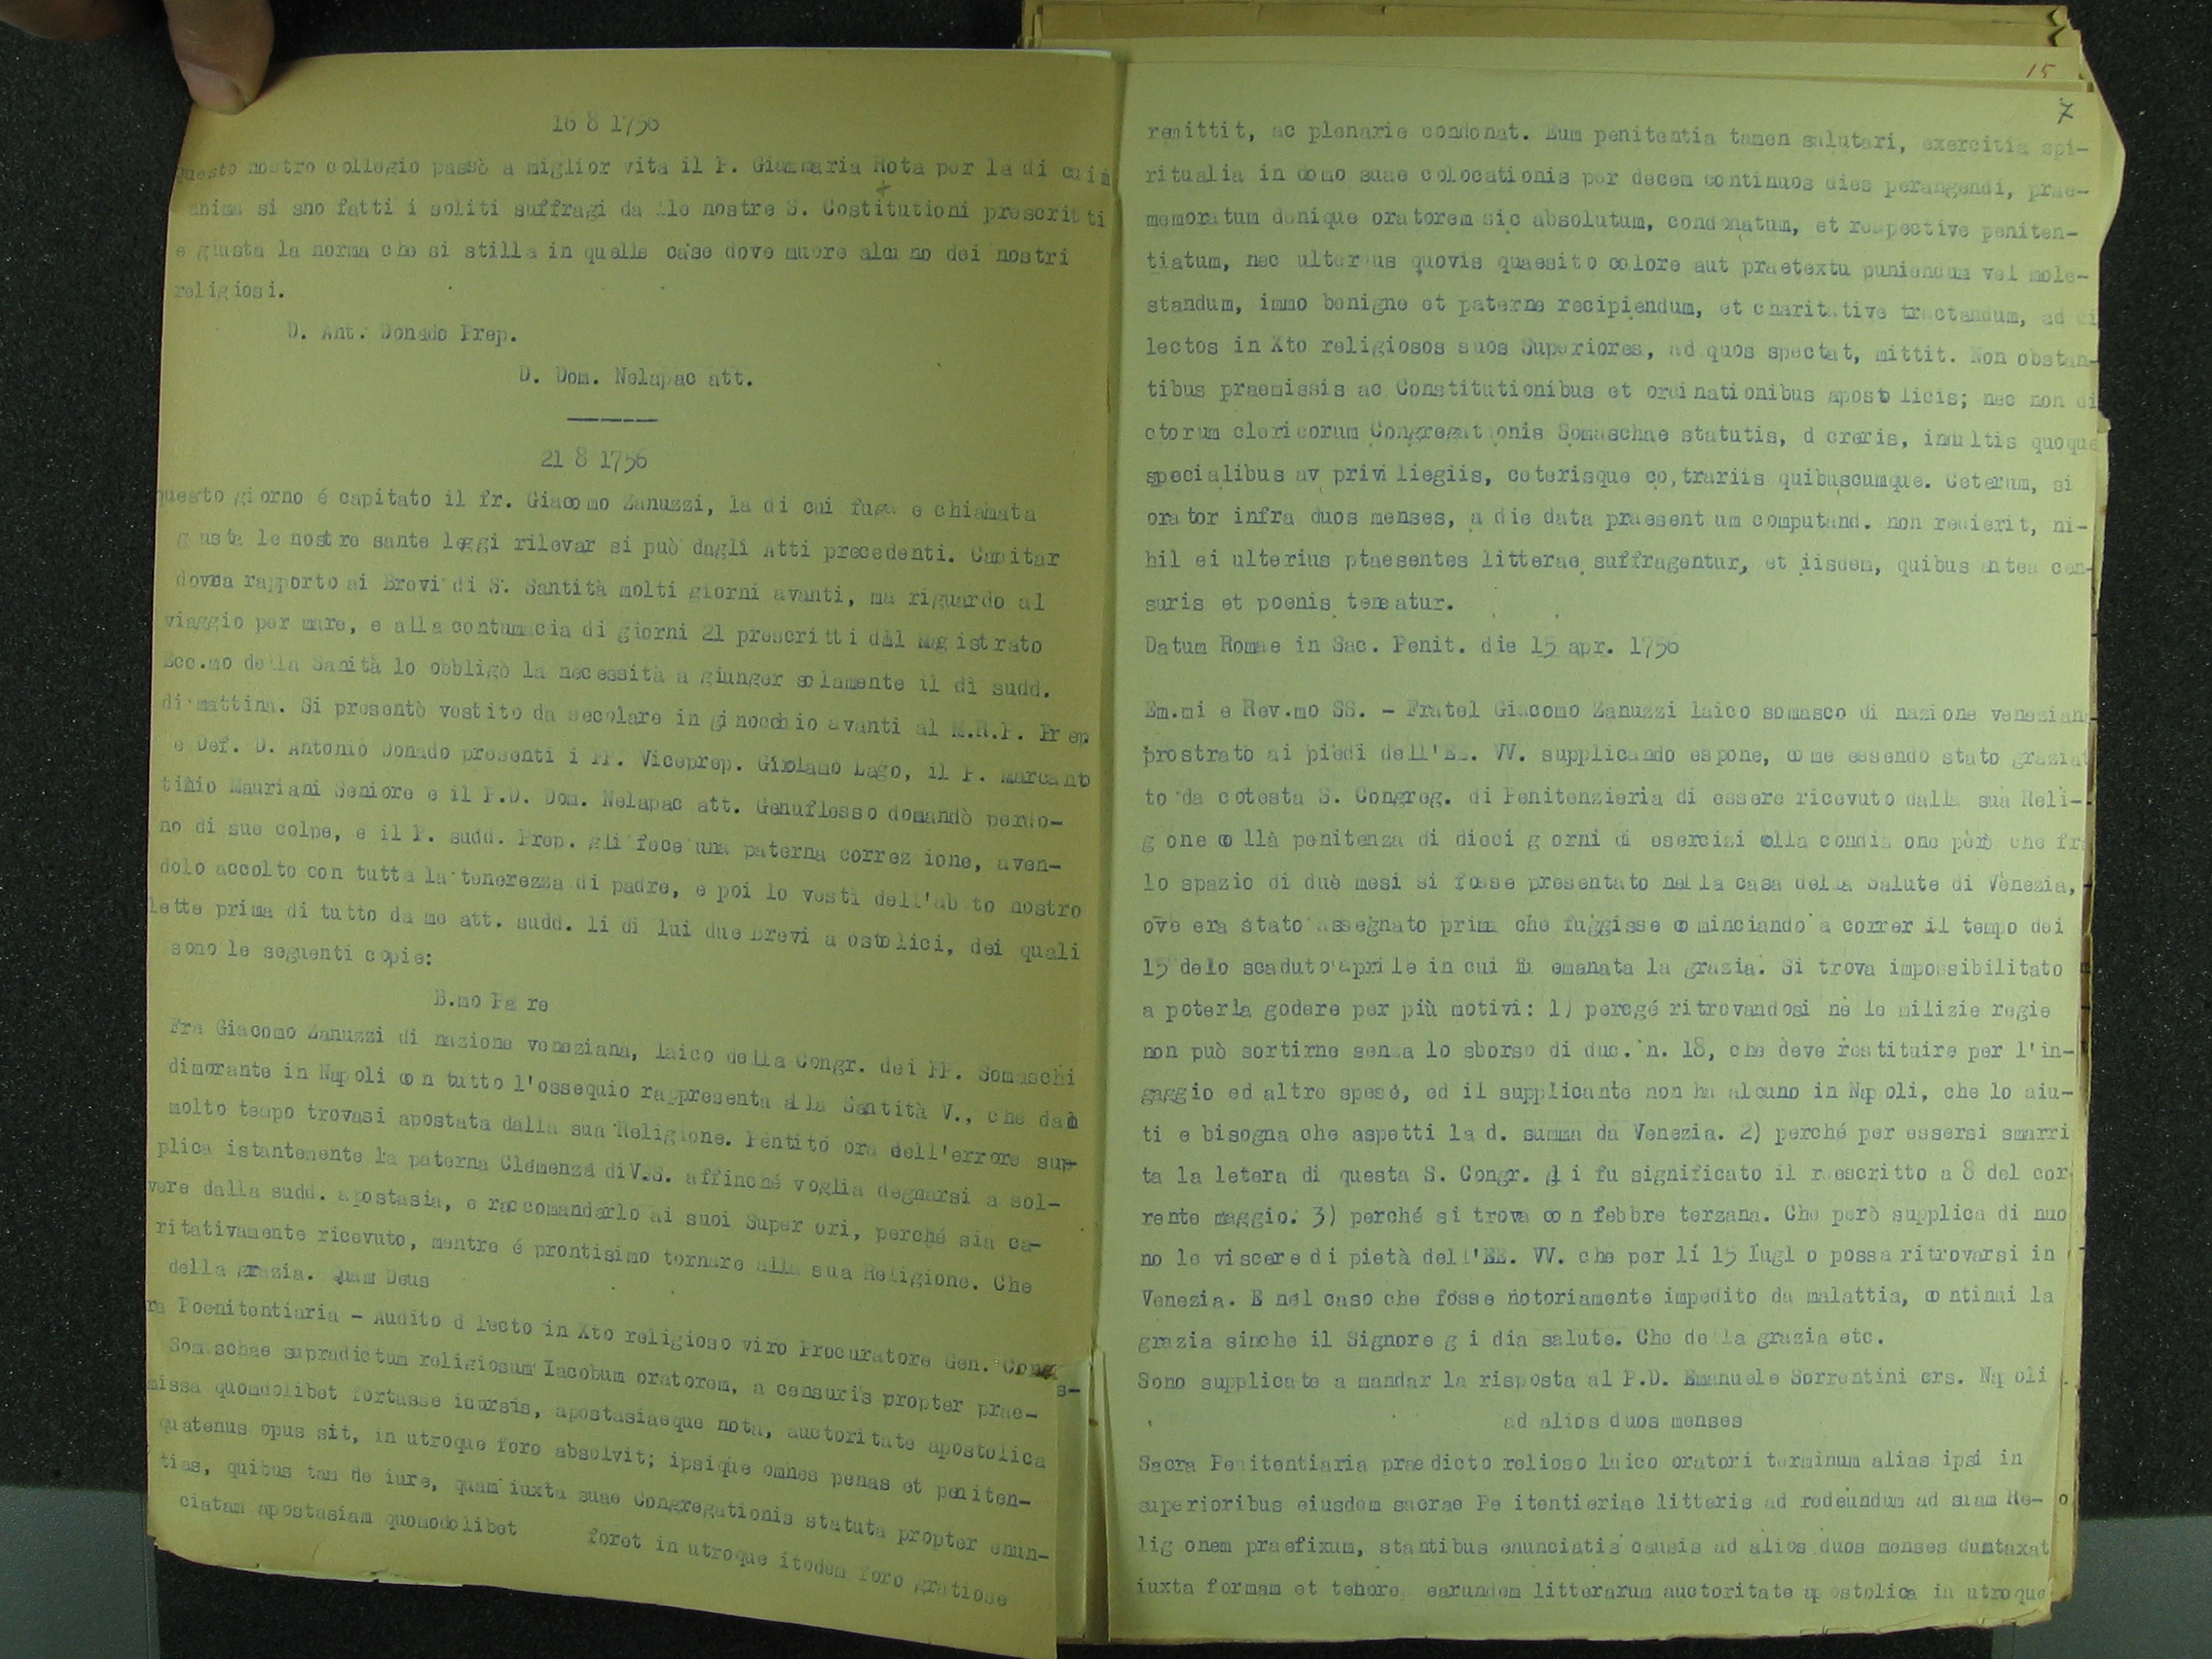 16 8 1756
questo nostro collegio passò a miglior vita il P. Giammaria Rota per la di cui
anima si sno fatti i soliti suffragi da lle nostre S. Costitutioni prescritti
e giusta la norma che si stilla in quelle case dove muore alcu no dei nostri
religiosi.
D. Ant. Donado Prep.
D. Dom. Nelapac att.
21 8 1756
questo giorno é capitato il fr. Giacomo Zanuzzi, la di cui fuga e chiamata
giusta le nostre sante leggi rilevar si può dagli Atti precedenti. Capitar
dovea rapporto ai Brevi di S. Santità molti giorni avanti, ma riguardo al
viaggio per mare, e alla contumacia di giorni 21 prescritti dal Magistrato
Ecc.mo della Sanità lo obbligò la necessità a giunger solamente il dì sudd.
di mattina. Si presentò vestito da secolare in ginocchio avanti al M.R.P. Prep
e Def. D. Antonio Donado presenti i PP. Viceprep. Girolamo Lago, il P. Marcanto
tinio Mauriani Seniore e il P.D. Dom. Nelapac att. Genuflesso domandò perdo-
no di sue colpe, e il P. sudd. Prep. gli fece una paterna correz ione, aven-
dolo accolto con tutta la tenerezza di padre, e poi lo vestì dell'ab to nostro
lette prima di tutto da me att. sudd. li di lui due Brevi a ostolici, dei quali
sono le seguenti copie:
B.mo Pa re
Fra Giacomo Zanuzzi di nazione veneziana, laico della Congr. dei PP. Somaschi
dimorante in Napoli con tutto l'ossequio rappresenta alla Santità V., che da
molto tempo trovasi apostata dalla sua Religione. Pentito ora dell'errore sup-
plica istantemente la paterna Clemenza di V.S. affinché voglia degnarsi a sol-
vere dalla sudd. apostasia, e raccomandarlo ai suoi Super ori, perché sia ca-
ritativamente ricevuto, mentre é prontisimo tornare alla sua Religione. Che
della grazia. Quam Deus
ra Poenitentiaria - Audito d lecto in Xto religioso viro Procuratore Gen. Cong
s-
Somaschae supradictum religiosum Iacobum oratorem, a censuris propter prae-
missa quomdolibet fortasse icursis, apostasiaeque nota, auctoritate apostolica
quatenus opus sit, in utroque foro absolvit; ipsique omhes penas et peniten-
tias, quibus tam de iure, quam iuxta suae Congregationis statuta propter enun-
ciatam apostasiam quomodolibet foret in utroque itodem foro gratiose
15
7
remittit, ac plenarie condonat. Eum penitentia tamen salutari, exercitia spi-
ritualia in domo suae colocationis per decem continuos dies perangendi, prae-
memoratum denique oratorem sic absolutum, condonatum, et respective peniten-
tiatum, nec ulterius quovis quaesito colore aut praetextu puniendum vel mole-
standum, immo benigne et paterne recipiendum, et charitative tractandum, ad di
lectos in Xto religiosos suos Superiores, ad quos spectat, mittit. Non obstan-
tibus praemissis ac Constitutionibus et ordinationibus aposto licis; nec non di
ctorum clericorum Congregationis Somaschae statutis, d creris, indultis quoque
specialibus av privi liegiis, ceterisque co,trariis quibuscumque. Ceterum, si
orator infra duos menses, a die data praesent um computand. non redierit, ni-
hil ei ulterius ptaesentes litterae suffragentur, et iisdem, quibus antea cen-
suris et poenis teneatur.
Datum Romae in Sac. Penit. die 15 apr. 1756
Em.mi e Rev.mo SS. - Fratel Giacomo Zanuzzi laico somasco di nazione veneziana
prostrato ai piedi dell'EE. VV. supplicando espone, come essendo stato graziat
to da cotesta S. Congreg. di Penitenzieria di essere ricevuto dalla sua Reli-
g one co lla penitenza di dieci g orni di esercizi colla condiz one però che fr
lo spazio di due mesi si fosse presentato nella casa della Salute di Venezia,
ove era stato assegnato prima che fuggisse cominciando a correr il tempo dei
15 delo scaduto aprile in cui fu emanata la grazia. Si trova impossibilitato
a poterla godere per più motivi: 1) percgé ritrovandosi ne le milizie regie
non può sortirne senza lo sborso di duc. n. 18, che deve restituire per l'in-
gaggio ed altre spese, ed il supplicante non ha alcuno in Napoli, che lo aiu-
ti e bisogna che aspetti la d. summa da Venezia. 2) perché per essersi smarri
ta la letera di questa S. Congr. gl i fu significato il rescritto a 8 del cor
rente maggio. 3) perché si trova con febbre terzana. Che però supplica di nuo
no le viscere di pietà dell'EE. VV. che per li 15 lugl o possa ritrovarsi in
Venezia. E nel caso che fosse notoriamente impedito da malattia, continui la
grazia sinche il Signore g i dia salute. Che della grazia etc.
Sono supplicate a mandar la risposta al P.D. Emanuele Sorrentini crs. Napoli
ad alios duos menses
Sacra Penitentiaria praedicto relioso laico oratori terminum alias ipsi in
superioribus eiusdem sacrae Pe itentieriae litteris ad redeundum ad suam Re-
lig onem praefixum, stantibus enunciatis causis ad alios duos menses dumtaxat
iuxta formam et tenore earundem litterarum auctoritate apostolica in utroque